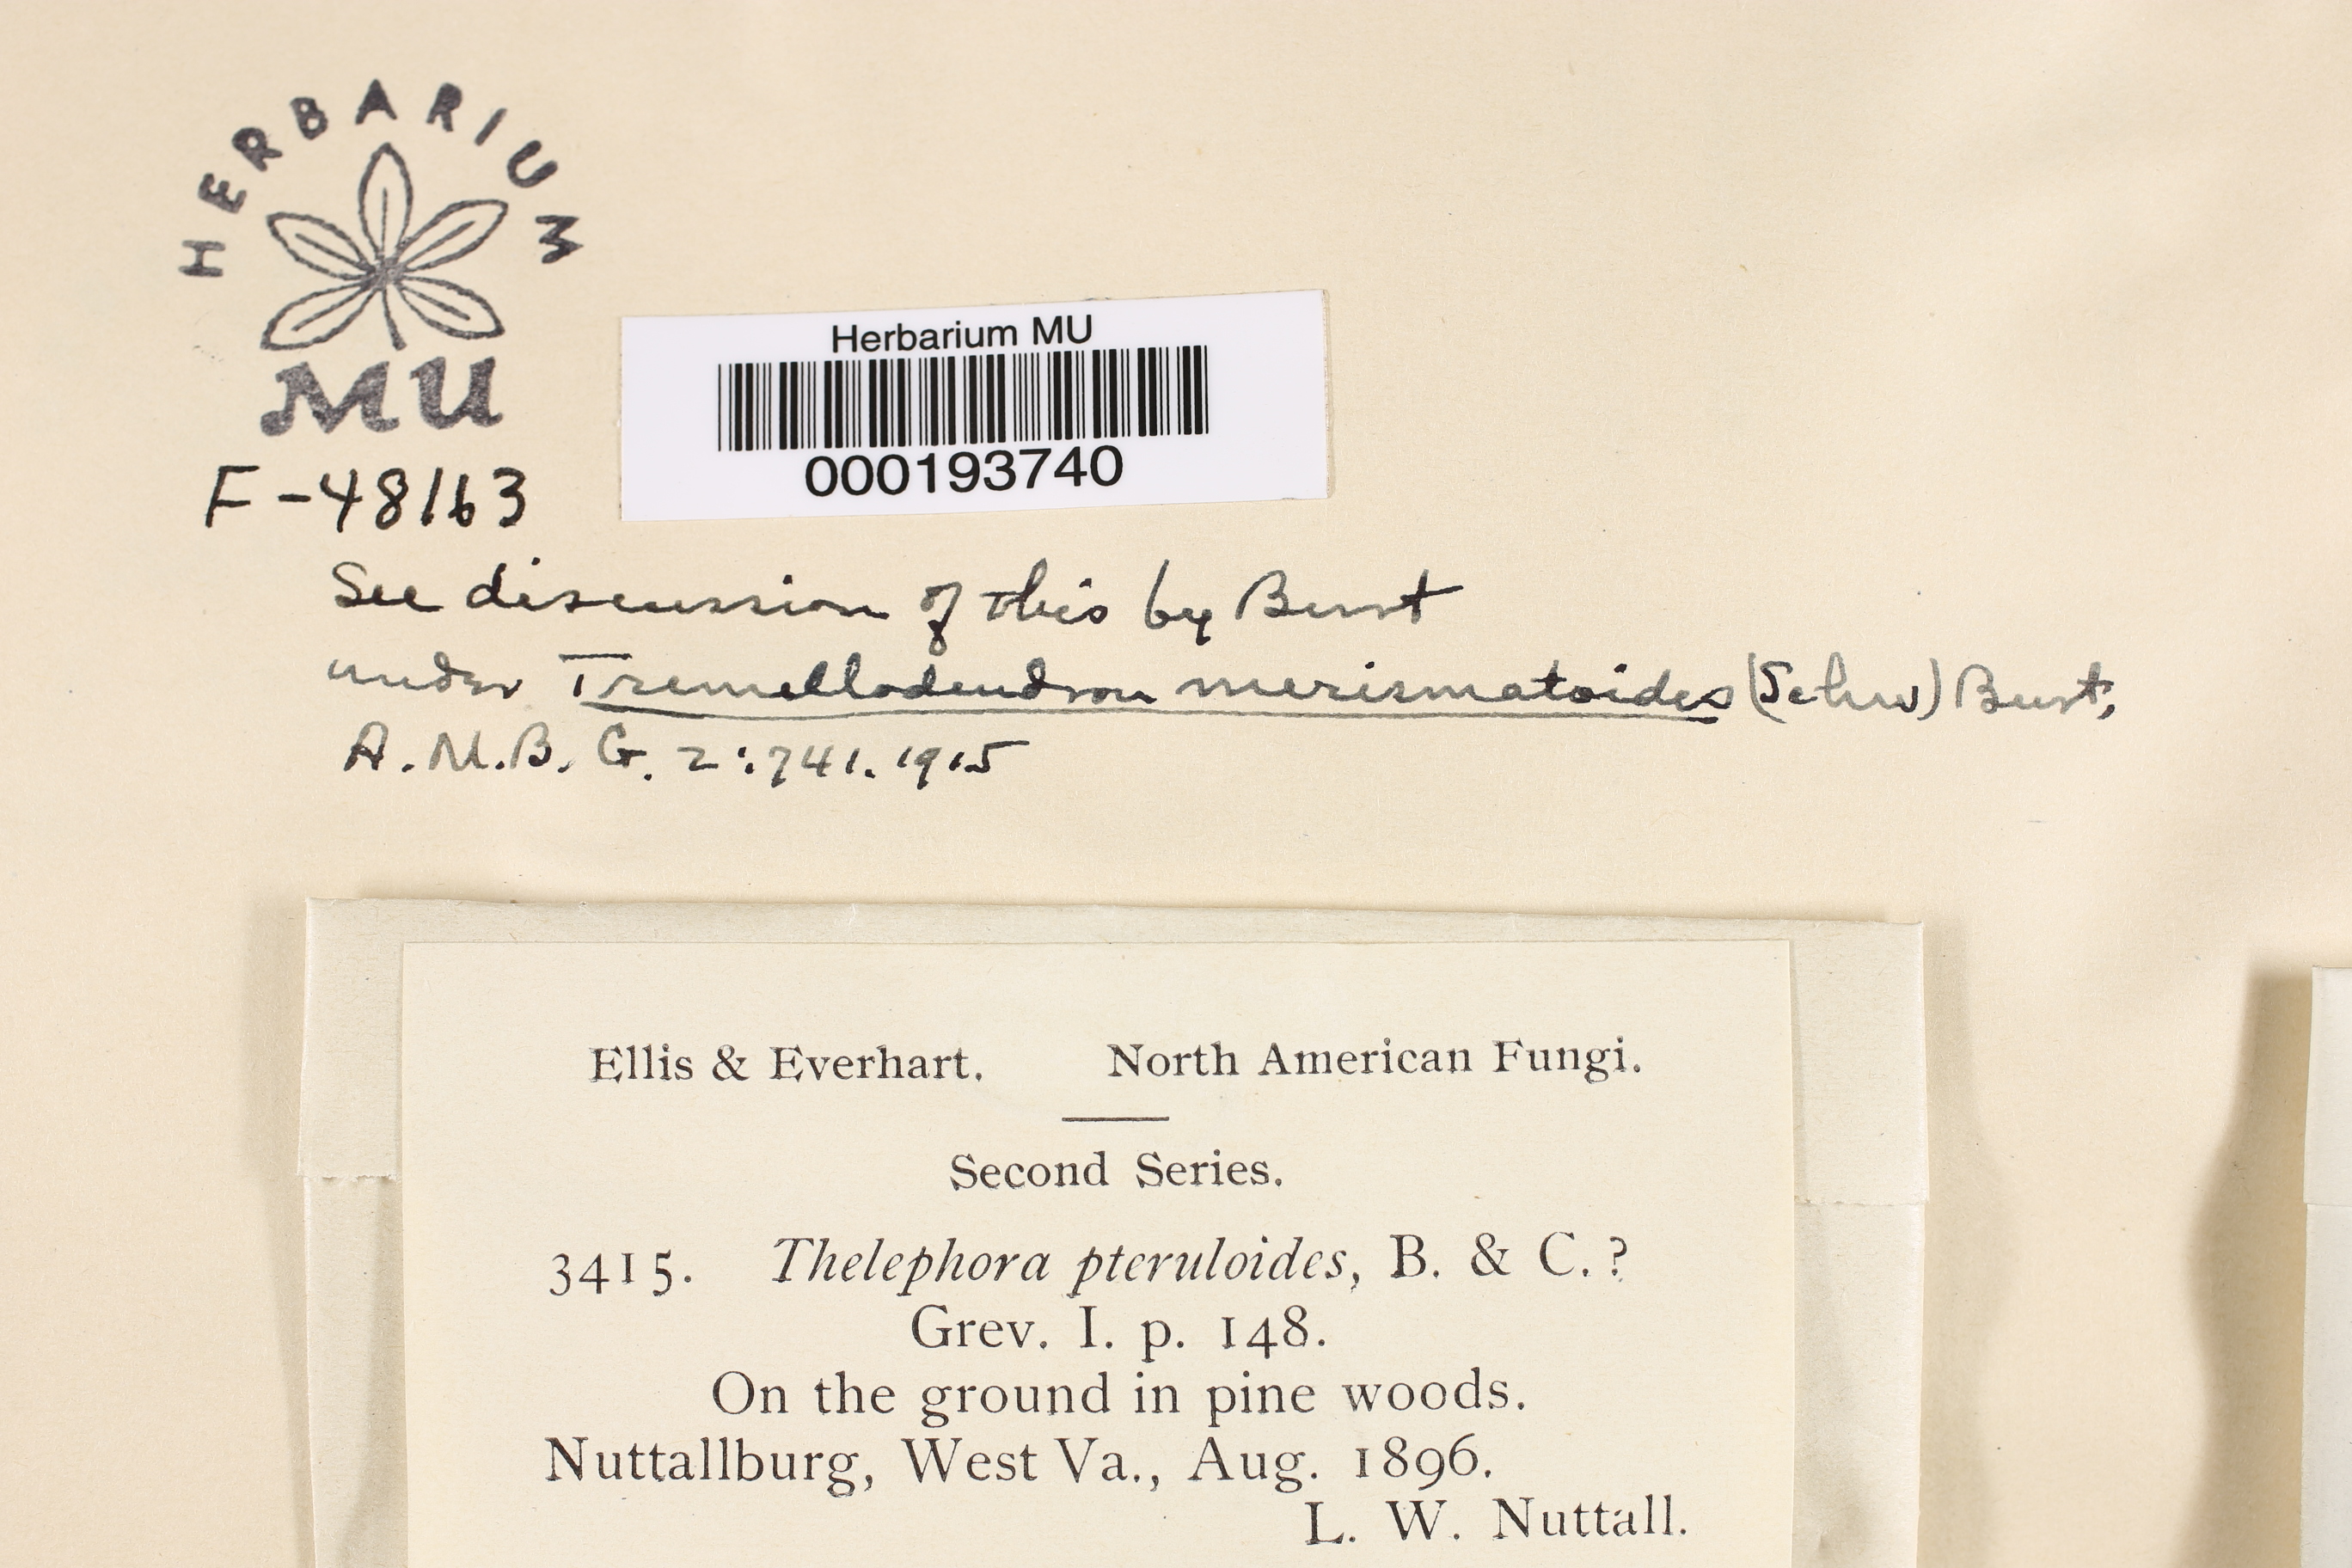 HERBARIUM
MU
F-48163
Herbarium MU
000193740
See discussion of this by Burt
under Tremellodendron merismatoides (Schw) Burt,
A.M.B.G. 2:741. 1915
Ellis & Everhart. North American Fungi.
Second Series.
3415. Thelephora pteruloides, B. & C.?
Grev. I. p. 148.
On the ground in pine woods.
Nuttallburg, West Va., Aug. 1896.
L. W. Nuttall.